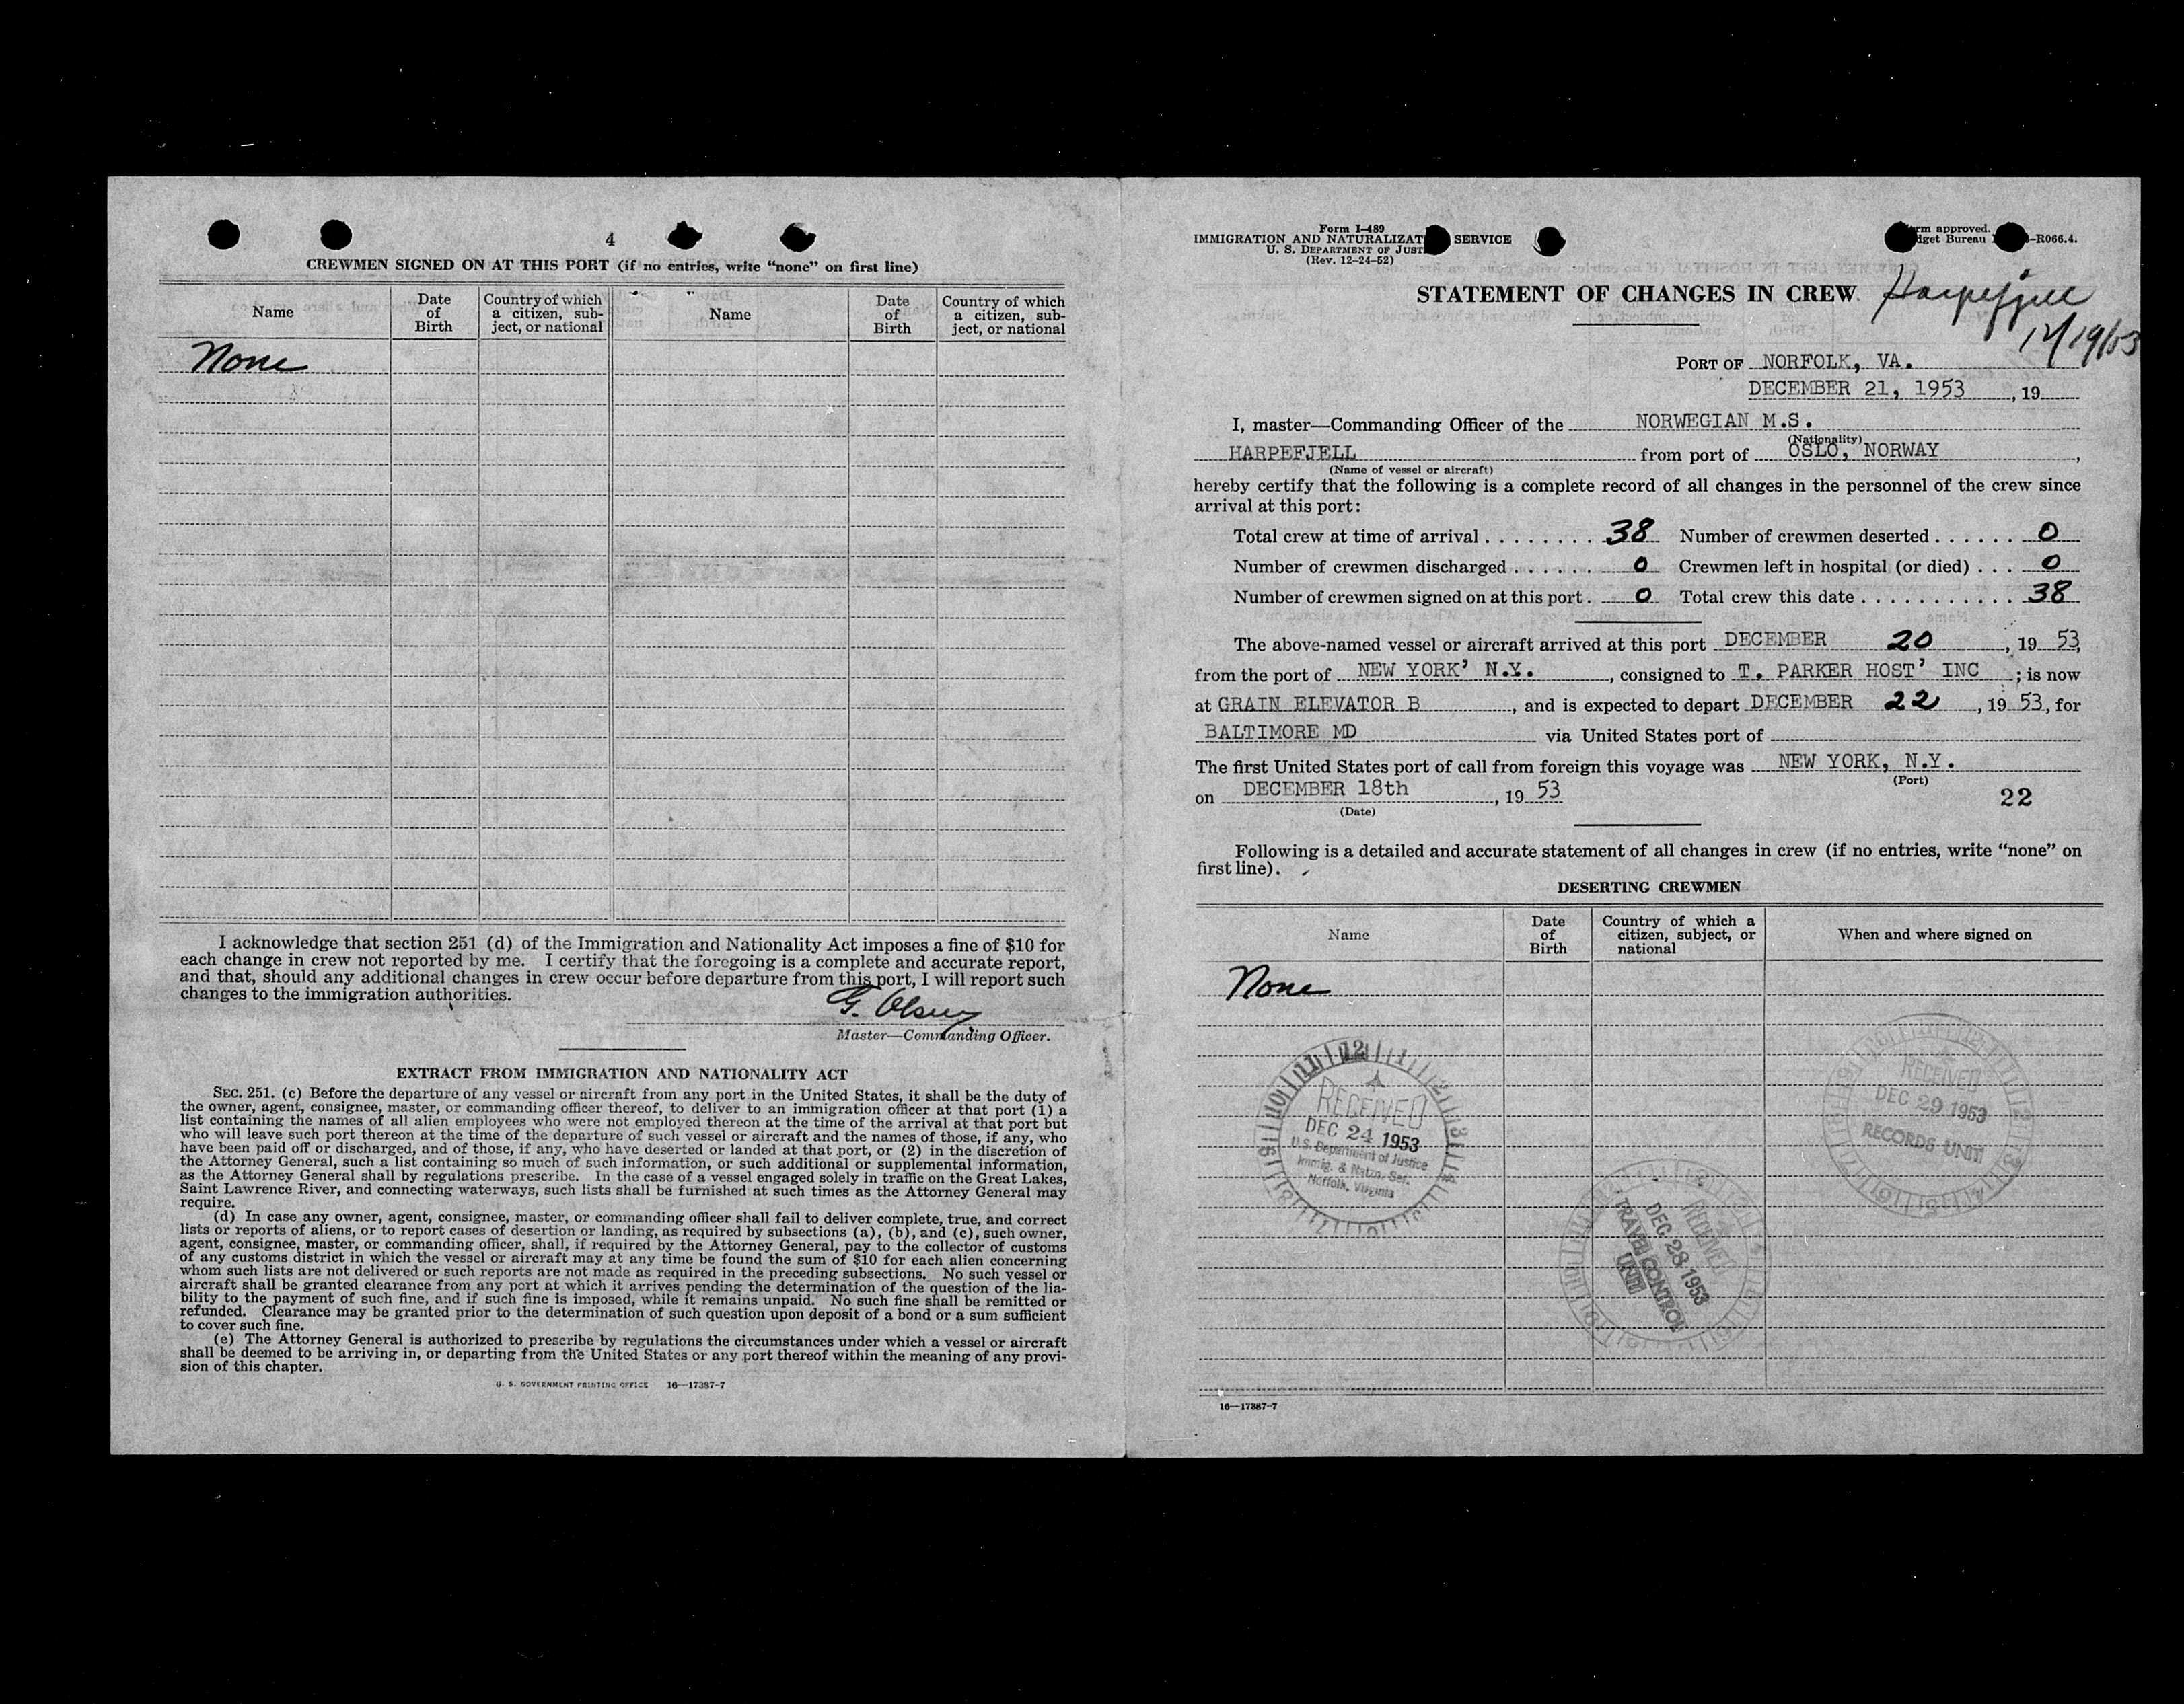 4
CREWMEN SIGNED ON AT THIS PORT (if no entries, write “none” on first line)
Name
Date of Birth
Country of which a citizen, subject, or national
Name
Date of Birth
Country of which a citizen, subject, or national
None
I acknowledge that section 251 (d) of the Immigration and Nationality Act imposes a fine of $10 for
each change in crew not reported by me. I certify that the foregoing is a complete and accurate report,
and that, should any additional changes in crew occur before departure from this port, I will report such
changes to the immigration authorities.
G. Olsen
Master—Commanding Officer.
EXTRACT FROM IMMIGRATION AND NATIONALITY ACT
SEC. 251. (c) Before the departure of any vessel or aircraft from any port in the United States, it shall be the duty of
the owner, agent, consignee, master, or commanding officer thereof, to deliver to an immigration officer at that port (1) a
list containing the names of all alien employees who were not employed thereon at the time of the arrival at that port but
who will leave such port thereon at the time of the departure of such vessel or aircraft and the names of those, if any, who
have been paid off or discharged, and of those, if any, who have deserted or landed at that port, or (2) in the discretion of
the Attorney General, such a list containing so much of such information, or such additional or supplemental information,
as the Attorney General shall by regulations prescribe. In the case of a vessel engaged solely in traffic on the Great Lakes,
Saint Lawrence River, and connecting waterways, such lists shall be furnished at such times as the Attorney General may
require.
(d) In case any owner, agent, consignee, master, or commanding officer shall fail to deliver complete, true, and correct
lists or reports of aliens, or to report cases of desertion or landing, as required by subsections (a), (b), and (c), such owner,
agent, consignee, master, or commanding officer, shall, if required by the Attorney General, pay to the collector of customs
of any customs district in which the vessel or aircraft may at any time be found the sum of $10 for each alien concerning
whom such lists are not delivered or such reports are not made as required in the preceding subsections. No such vessel or
aircraft shall be granted clearance from any port at which it arrives pending the determination of the question of the lia-
bility to the payment of such fine, and if such fine is imposed, while it remains unpaid. No such fine shall be remitted or
refunded. Clearance may be granted prior to the determination of such question upon deposit of a bond or a sum sufficient
to cover such fine.
(e) The Attorney General is authorized to prescribe by regulations the circumstances under which a vessel or aircraft
shall be deemed to be arriving in, or departing from the United States or any port thereof within the meaning of any provi-
sion of this chapter.
U. S. GOVERNMENT PRINTING OFFICE 16—17387-7
Form I-489
IMMIGRATION AND NATURALIZAT SERVICE
U. S. DEPARTMENT OF JUST
(Rev. 12-24-52)
rm approved.
dget Bureau -R066.4.
STATEMENT OF CHANGES IN CREW
Harpefjell
12/19/53
PORT OF NORFOLK, VA.
DECEMBER 21, 1953, 19
I, master—Commanding Officer of the NORWEGIAN M.S.
(Nationality)
HARPEFJELL from port of OSLO, NORWAY,
(Name of vessel or aircraft)
hereby certify that the following is a complete record of all changes in the personnel of the crew since
arrival at this port:
Total crew at time of arrival . . . . . . . . . 38 Number of crewmen deserted . . . . . . 0
Number of crewmen discharged . . . . . . 0 Crewmen left in hospital (or died) . . . 0
Number of crewmen signed on at this port . 0 Total crew this date . . . . . . . . . . . . 38
The above-named vessel or aircraft arrived at this port DECEMBER 20, 19 53,
from the port of NEW YORK’ N.Y., consigned to T. PARKER HOST’ INC; is now
at GRAIN ELEVATOR B, and is expected to depart DECEMBER 22, 19 53, for
BALTIMORE MD via United States port of
The first United States port of call from foreign this voyage was NEW YORK, N.Y.
(Port)
on DECEMBER 18th, 19 53
(Date)
22
Following is a detailed and accurate statement of all changes in crew (if no entries, write “none” on
first line).
DESERTING CREWMEN
Name
Date of Birth
Country of which a citizen, subject, or national
When and where signed on
None
RECEIVED
DEC 24 1953
U.S. Department of Justice
Immig. & Natzn. Ser.
Norfolk, Virginia
RECEIVED
DEC 28 1953
TRAVEL CONTROL
UNIT
RECEIVED
DEC 29 1953
RECORDS UNIT
16—17387-7